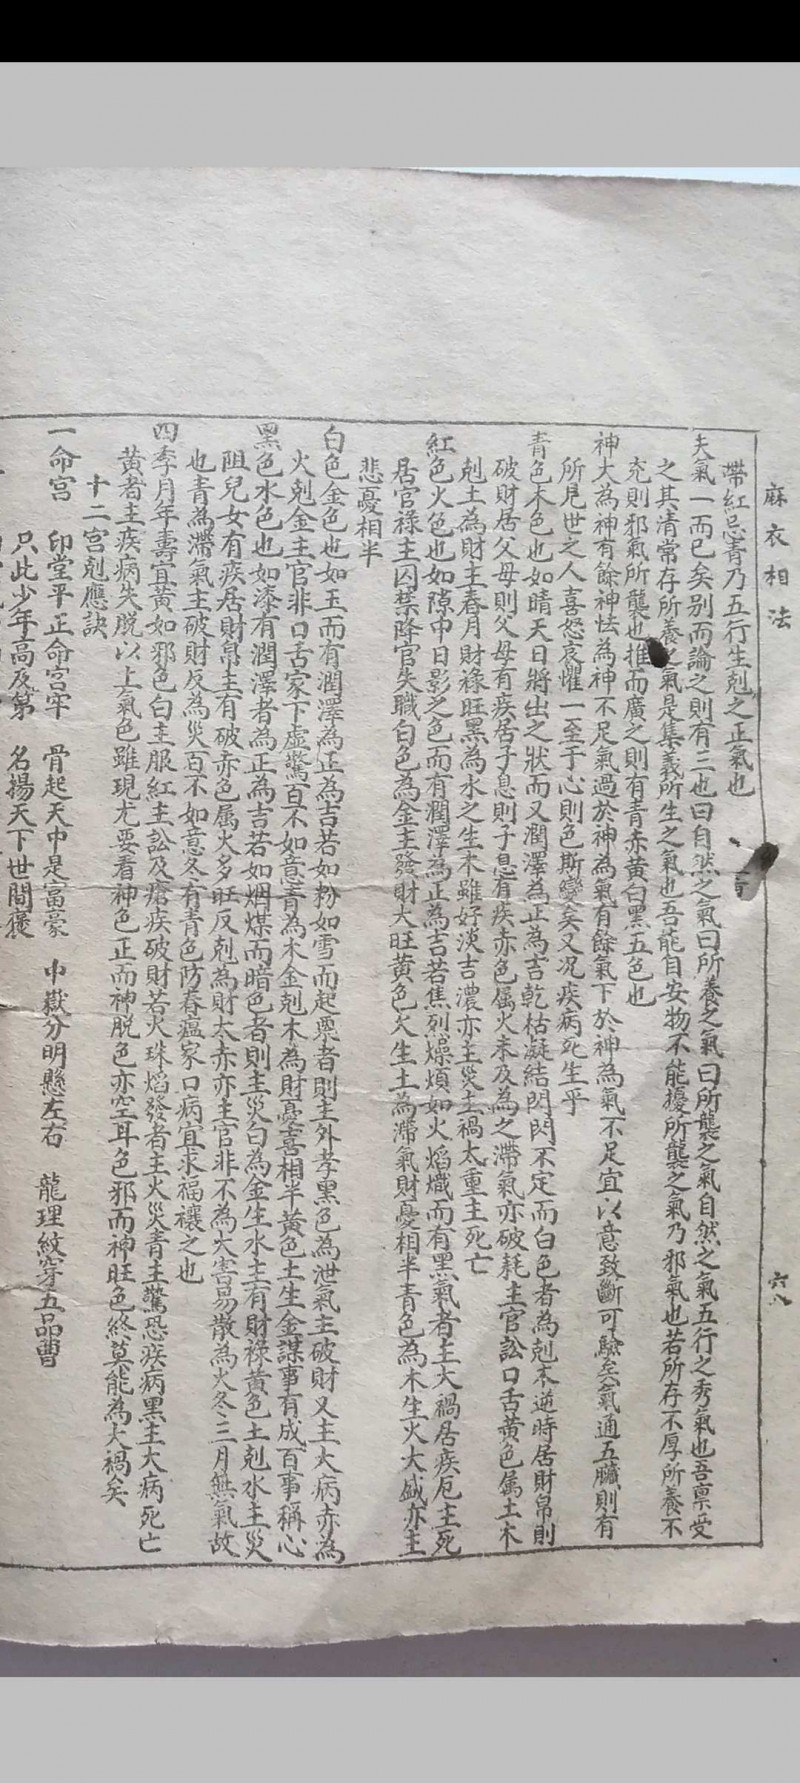 麻衣相法
六八
帶紅忌青乃五行生剋之正氣也
夫氣一而已矣別而論之則有三也曰自然之氣曰所養之氣曰所襲之氣自然之氣五行之秀氣也吾禀受
之其清常存所養之氣是集義所生之氣也吾能自安物不能擾所襲之氣乃邪氣也若所存不厚所養不
充則邪氣所襲也推而廣之則有青赤黃白黑五色也
神大為神有餘神怯為神不足氣過於神為氣有餘氣下於神為氣不足宜以意致斷可驗矣氣通五臟則有
所見世之人喜怒哀懼一至于心則色斯變矣又况疾病死生乎
青色木色也如晴天日將出之狀而又潤澤為正為吉乾枯凝結閃閃不定而白色者為剋木逆時居財帛則
破財居父母則父母有疾居子息則子息有疾赤色属火未及為之滯氣亦破耗主官訟口舌黃色属土木
剋土為財主春月財祿旺黑為水之生木雖好淡吉濃亦主災土禍太重主死亡
紅色火色也如隙中日影之色而有潤澤為正為吉若焦烈燥煩如火焰熾而有黑氣者主大禍居疾厄主死
居官祿主囚禁降官失職白色為金主發財大旺黃色火生土為滯氣財憂相半青色為木生火大盛亦主
悲憂相半
白色金色也如玉而有潤澤為正為吉若如粉如雪而起粟者則主外孝黑色為泄氣主破財又主大病赤為
火剋金主官非口舌家下虛驚百不如意青為木金剋木為財憂喜相半黃色土生金謀事有成百事稱心
黑色水色也如漆有潤澤者為正為吉若如烟煤而暗色者則主災白為金生水主有財祿黃色土剋水主災
阻兒女有疾居財帛主有破赤色属火多旺反剋為財太赤亦主官非不為大害易散為火冬三月無氣故
也青為滯氣主破財反為災百不如意冬有青色防春瘟家口病宜求福禳之也
四季月年壽宜黃如邪色白主服紅主訟及瘡疾破財若火珠焰發者主火災青主驚恐疾病黑主大病死亡
黃者主疾病失脫以上氣色雖現尤要看神色正而神脫色亦空耳色邪而神旺色終莫能為大禍矣
十二宮剋應訣
一命宮 印堂平正命宮牢 骨起天中是富豪 中嶽分明懸左右 龍理紋穿五品曹
只此少年高及第 名揚天下世間褒